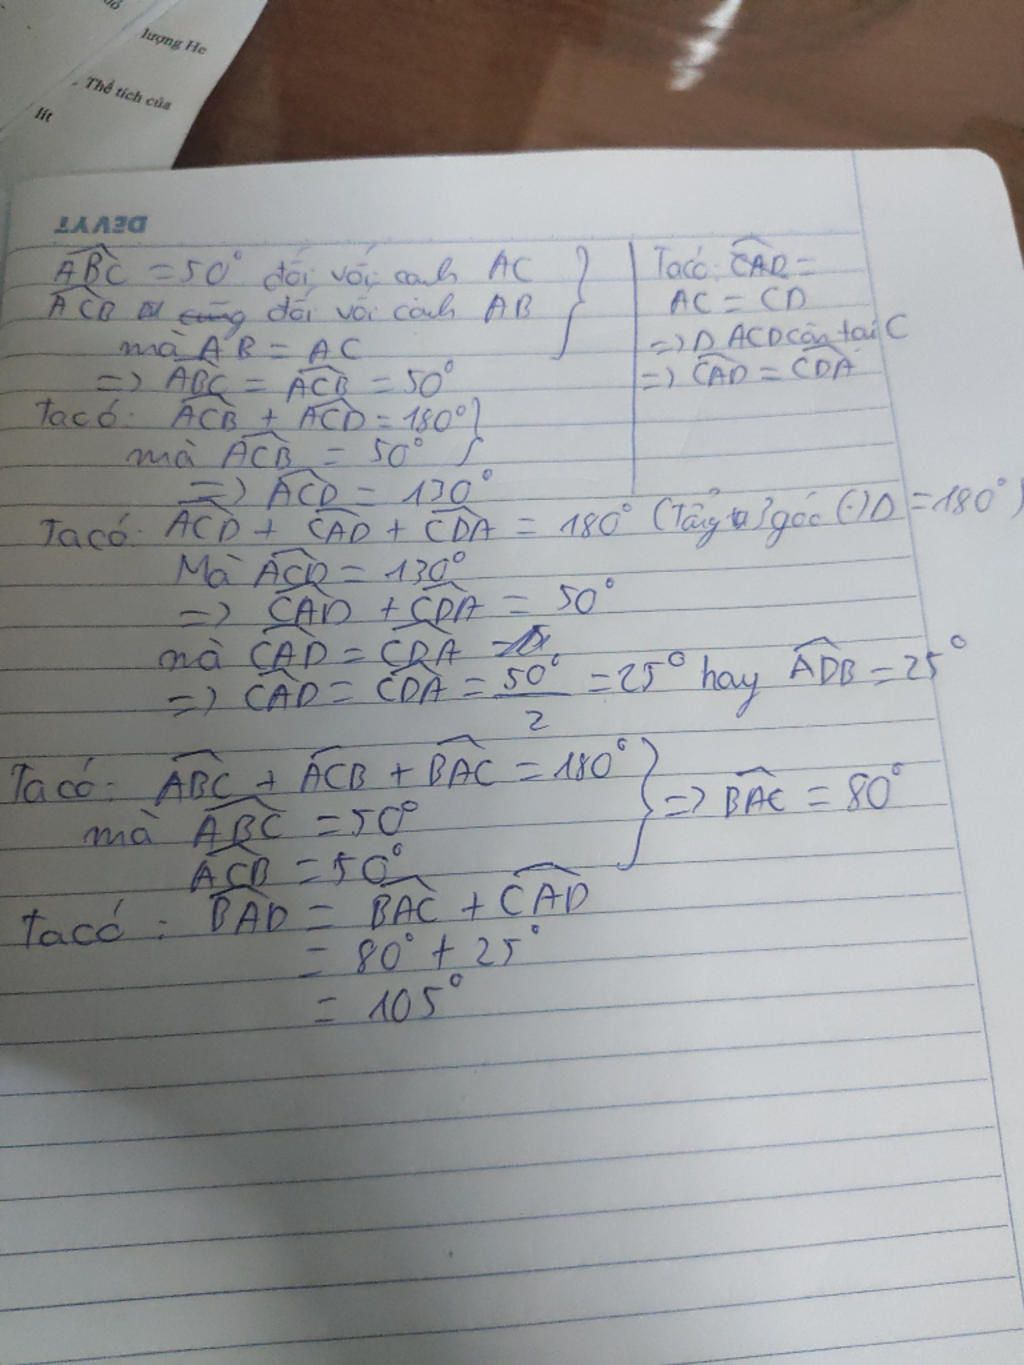 lượng He
Thể tích của
lít
DEVYT
ABC = 50° đối với cạnh AC
ACB cũng đối với cạnh AB
mà AB = AC
=> ABC = ACB = 50°
Ta có: CAD =
AC = CD
=> Δ ACD cân tại C
=> CAD = CDA
Ta có: ACB + ACD = 180°
mà ACB = 50°
=> ACD = 130°
Ta có: ACD + CAD + CDA = 180° (Tổng 3 góc (-) Δ = 180°)
Mà ACD = 130°
=> CAD + CDA = 50°
mà CAD = CDA
=> CAD = CDA = 50°/2 = 25° hay ADB = 25°
Ta có: ABC + ACB + BAC = 180°
mà ABC = 50°
ACB = 50°
=> BAC = 80°
Ta có: BAD = BAC + CAD
= 80° + 25°
= 105°